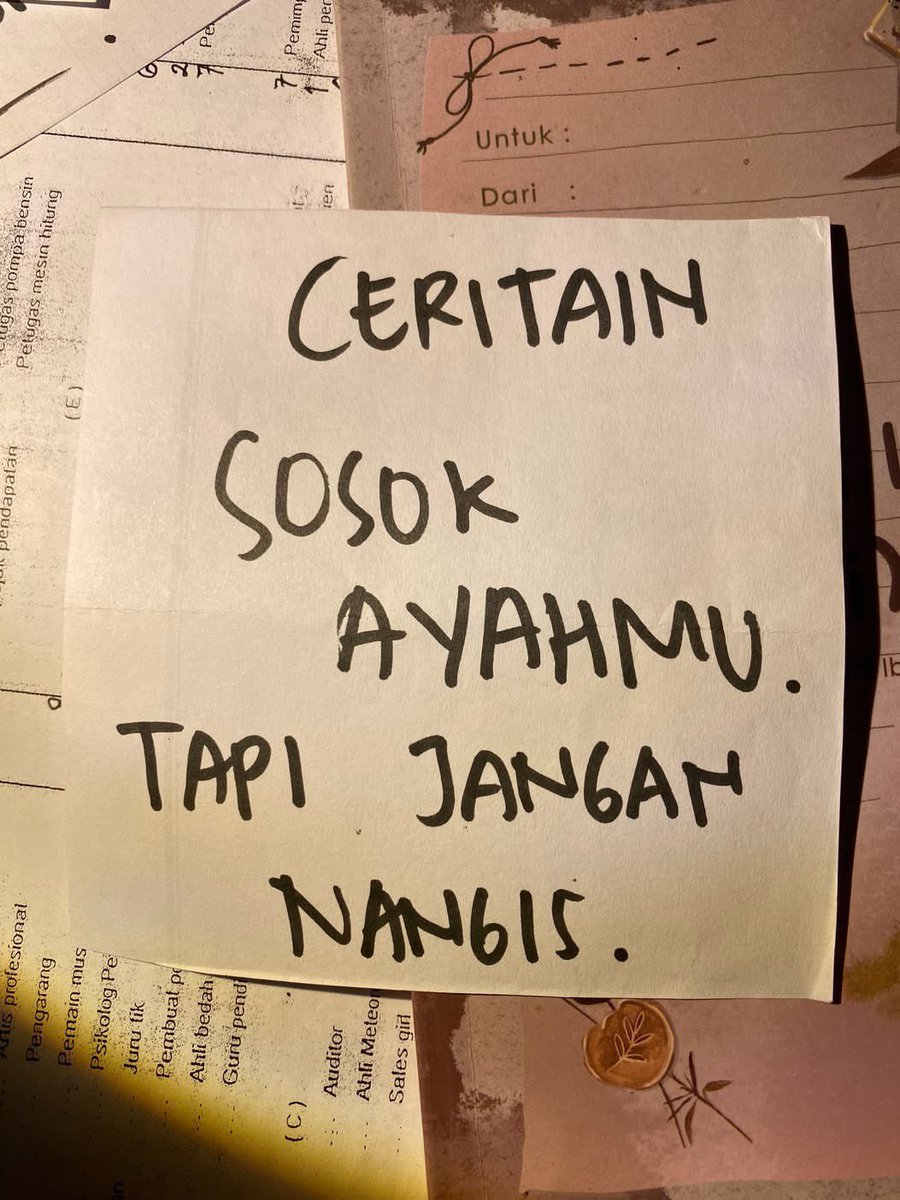 Untuk :
Dari :
CERITAIN
SOSOK
AYAHMU.
TAPI JANGAN
NANGIS.
Petugas mesin hitung
pompa bensin
(E)
pendapatan
profesional
Pengarang
Pemain mus
Psikolog Pe
Juru tik
Pembuat pe
Ahli bedah
Guru pend
(C)
Auditor
Ahli Meteor
Sales girl